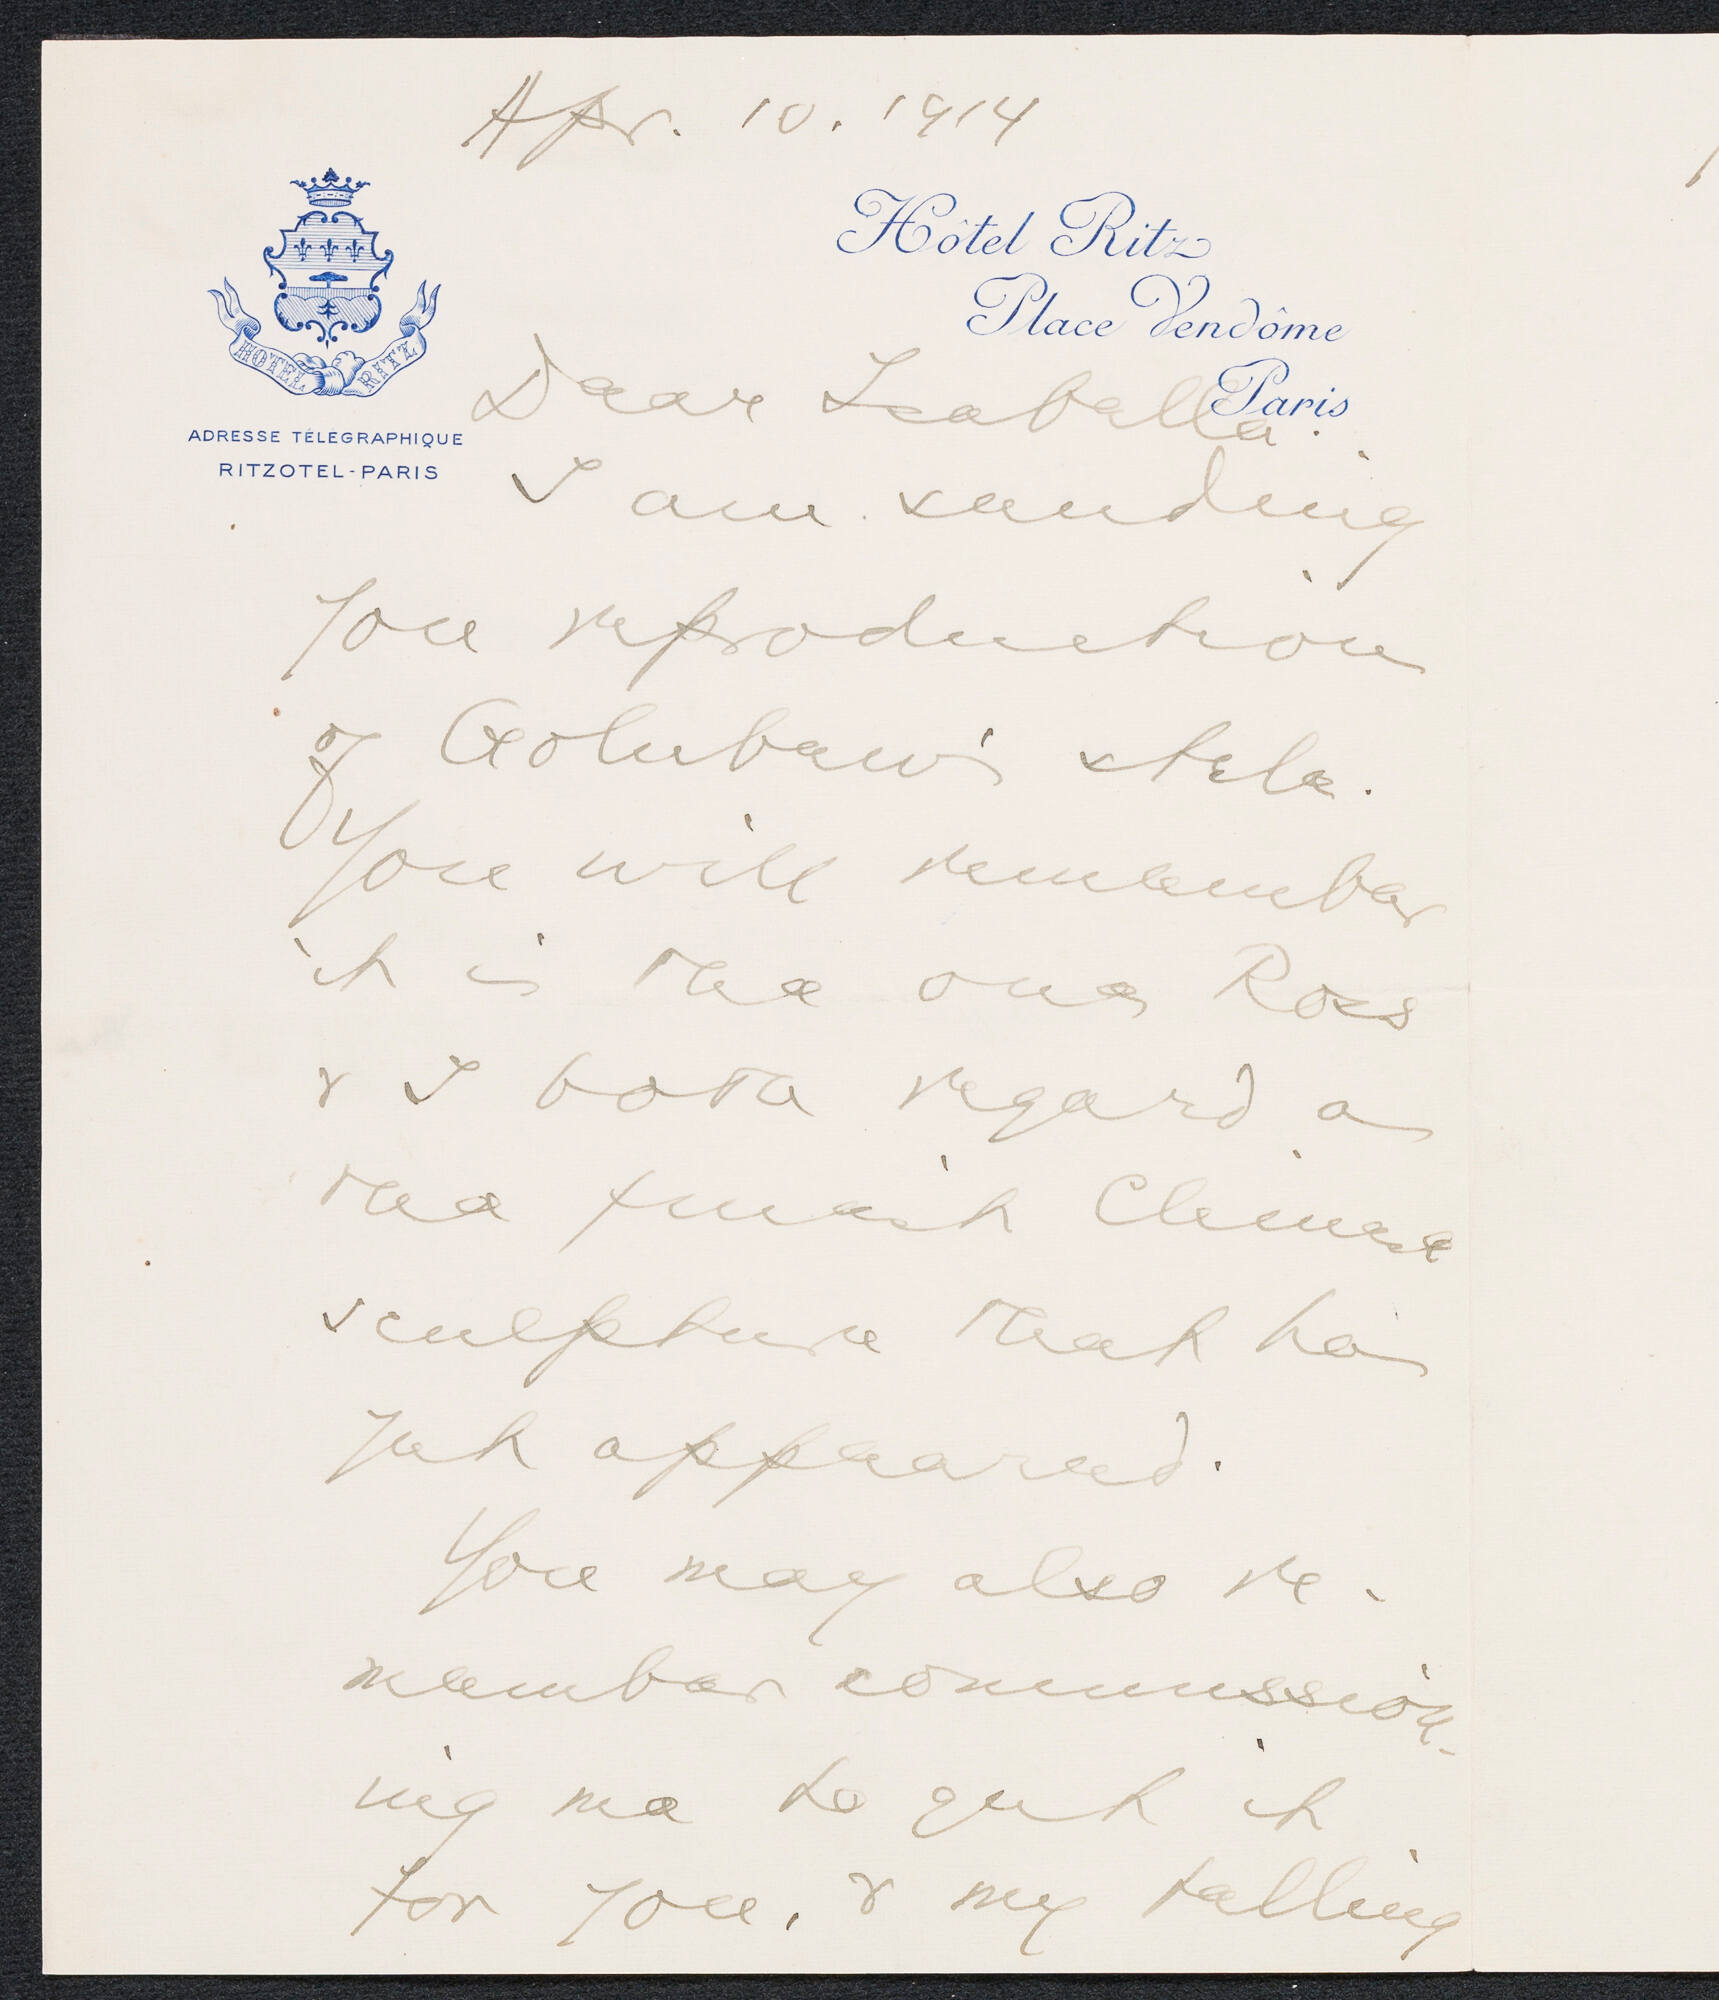 Apr. 10. 1914
Hôtel Ritz
Place Vendôme
Paris
HOTEL RITZ
ADRESSE TÉLÉGRAPHIQUE
RITZOTEL-PARIS
Dear Isabella.
I am sending
you reproduction
of Golubew's stele.
You will remember
it is the one Ross
& I both regard as
the finest Chinese
sculpture that has
yet appeared.
You may also re-
member commission-
ing me to get it
for you, & my telling